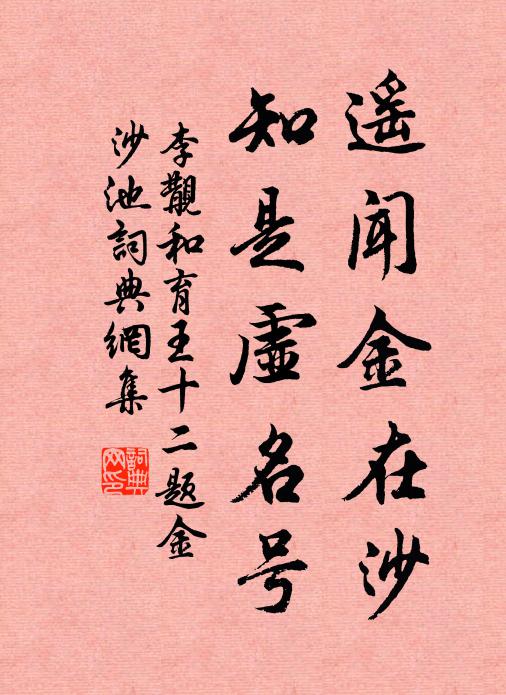 遥闻金在沙
知是虚名号
李觏和育王十二题金
沙池詞典網集
詞典
网印